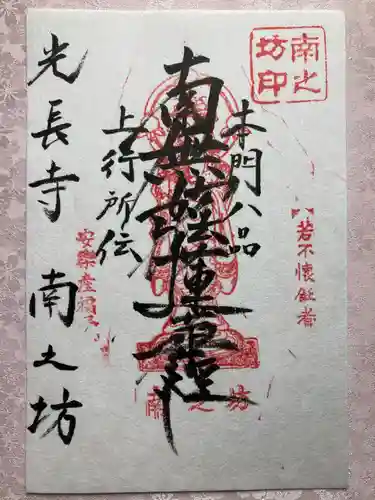 南之
坊印
若不懐任者
本門八品
南無妙法蓮華経
上行所伝
安楽産福子
南之坊
光長寺 南之坊